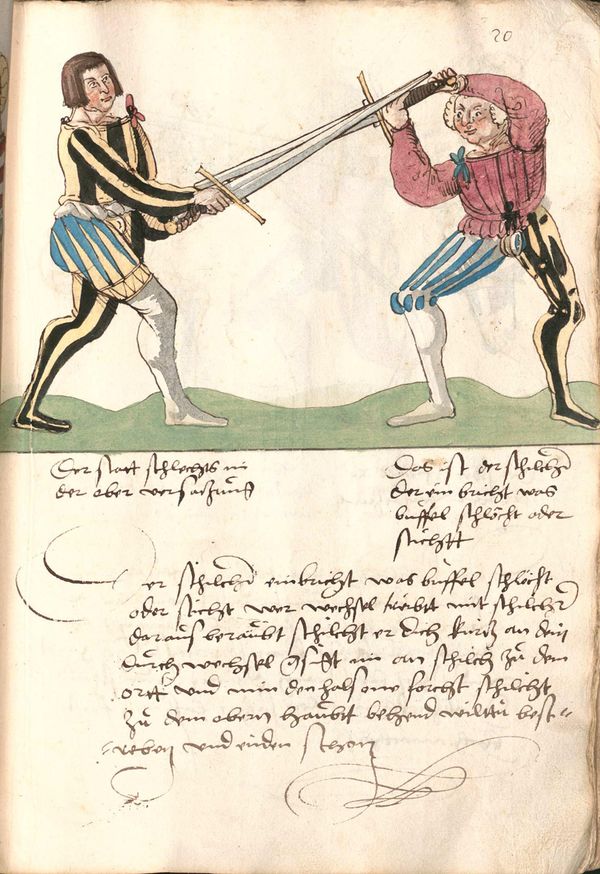 20
Der statt schlechts in
der ober versaczung
Das ist der schilcher
der ein bricht was
büffel schlecht oder
sticht
er schilcher einbricht was büffel schlecht
oder sticht wer wechsel treibtt mit schilcher
daraus beraubt schilcht er dich kurtz an dein
durch wechsel im an schilch zu dem
ortt und nim den hals one forcht schilcht
zu dem obern haubt behend wiltu best-
und enden schon